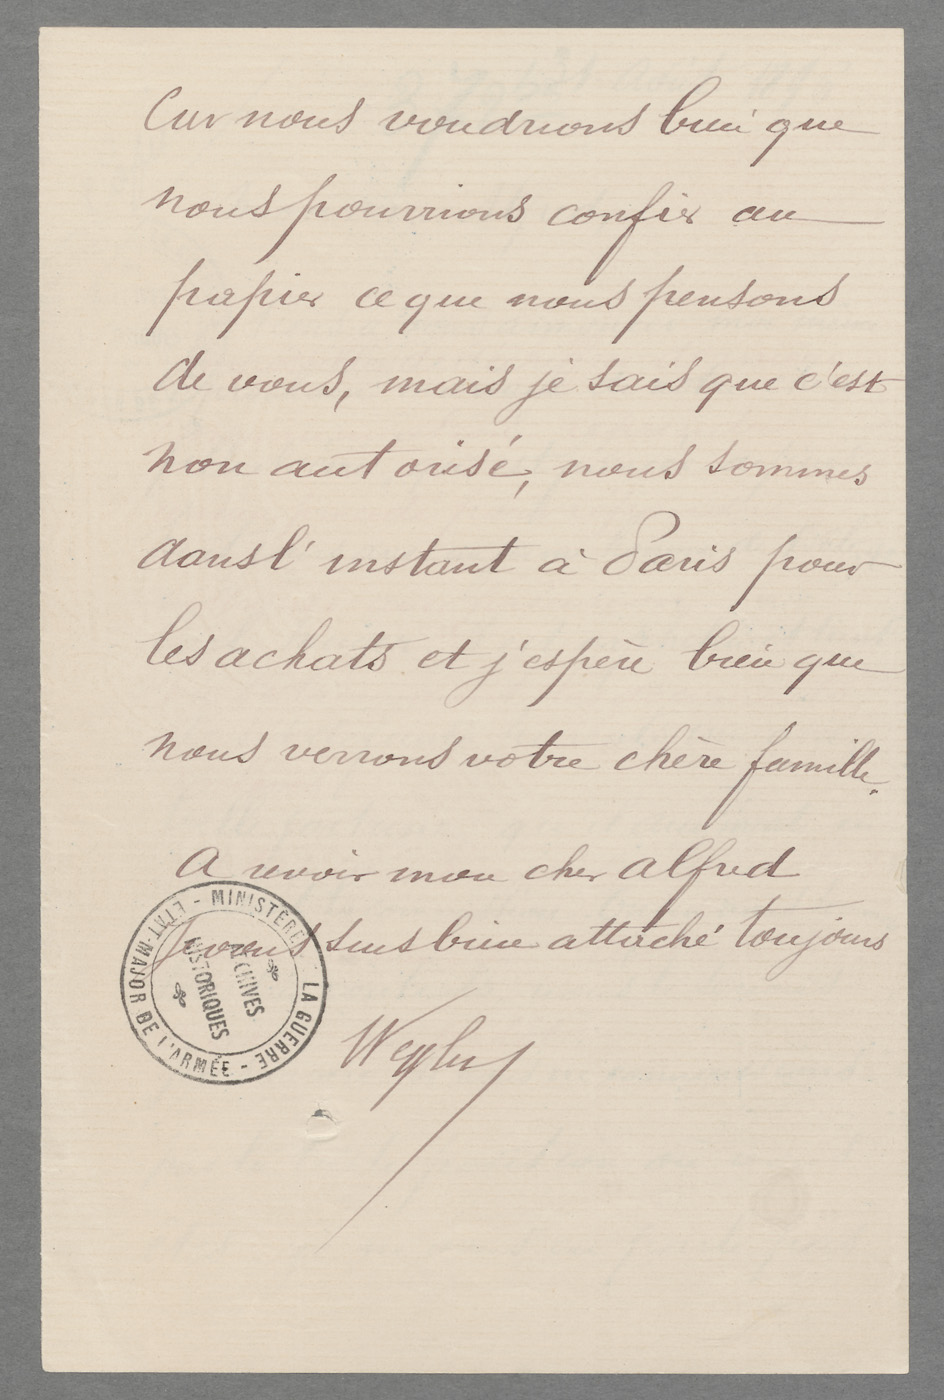 Car nous voudrions bien que
nous pourrions confier au
papier ce que nous pensons
de vous, mais je sais que c'est
non autorisé, nous sommes
dans l'instant à Paris pour
les achats et j'espère bien que
nous verrons votre chère famille.
A revoir mon cher Alfred
Je vous suis bien attaché toujours
Weyler
MINISTÈRE LA GUERRE - ETAT-MAJOR DE L'ARMÉE -
ARCHIVES
HISTORIQUES